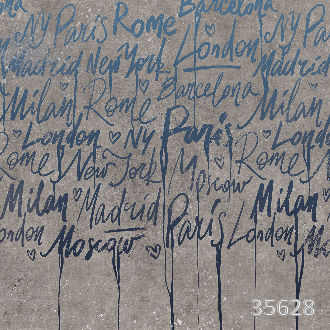 Barcelona
NY Paris Rome London NY Pa
Madrid New York Madrid
Barcelona
Milan Rome Milan
London NY Paris London
Rome New York Moscow Rome
Milan Madrid Milan
London Paris London
Moscow
35628